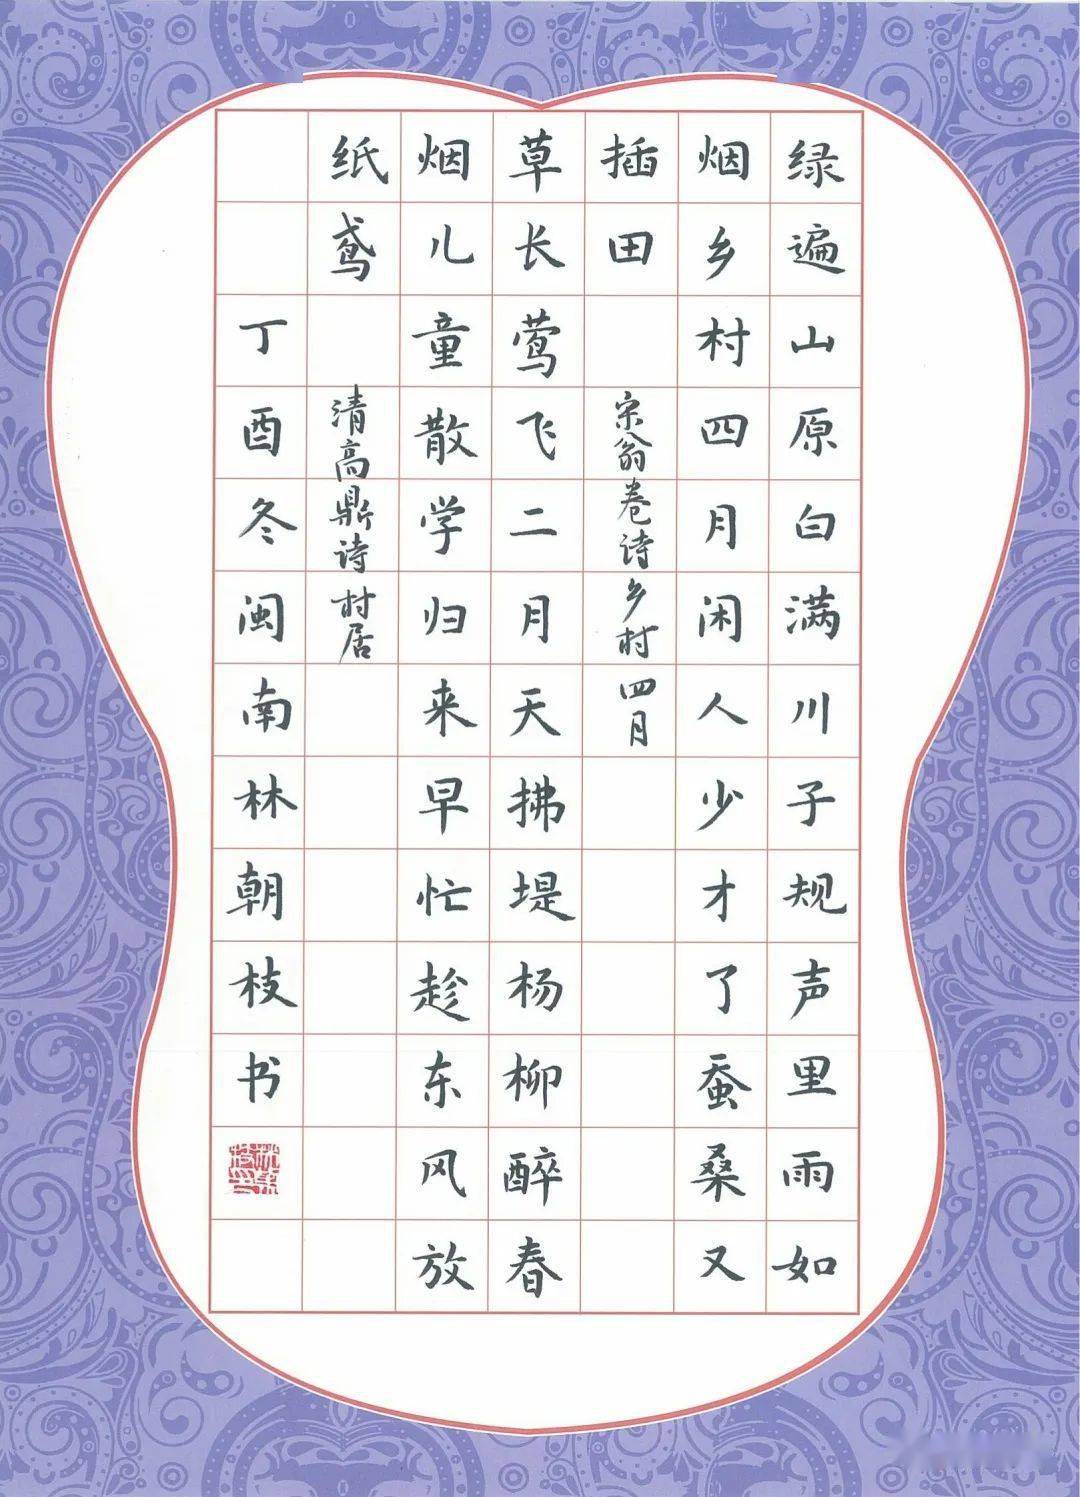 绿遍山原白满川子规声里雨如
烟乡村四月闲人少才了蚕桑又
插田 宋翁卷诗乡村四月
草长莺飞二月天拂堤杨柳醉春
烟儿童散学归来早忙趁东风放
纸鸢 清高鼎诗村居
丁酉冬闽南林朝枝书